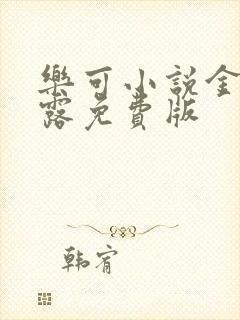 樂可小說金
露免費版
韩宥